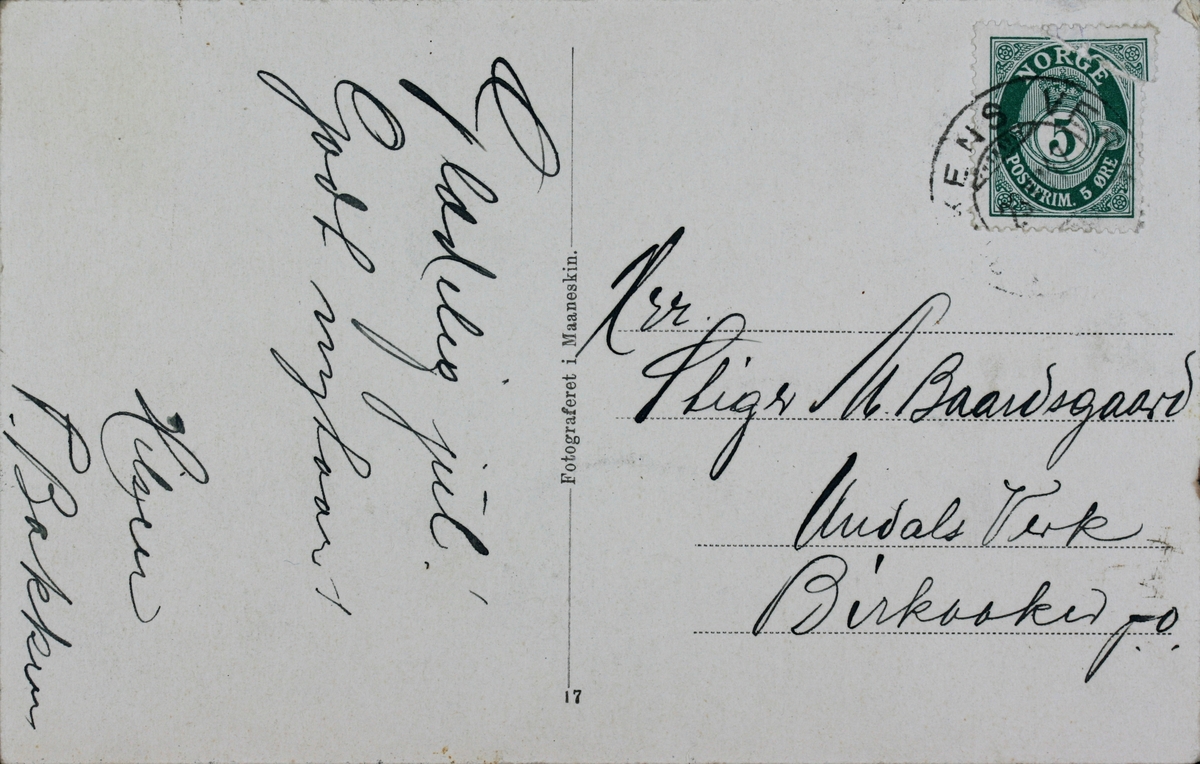 Glædelig jul!
Godt nytaar!
Hilsen
A. Bakken
Fotograferet i Maaneskin.
17
NORGE
5
POSTFRIM. 5 ØRE
Hrr.
Stiger M. Baardsgaard
Undals Verk
Birkaaker p.o.